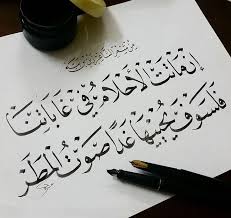 إن ماتت الأحلام في غاباتنا
فلسوف يحييها غدا صوت المطر